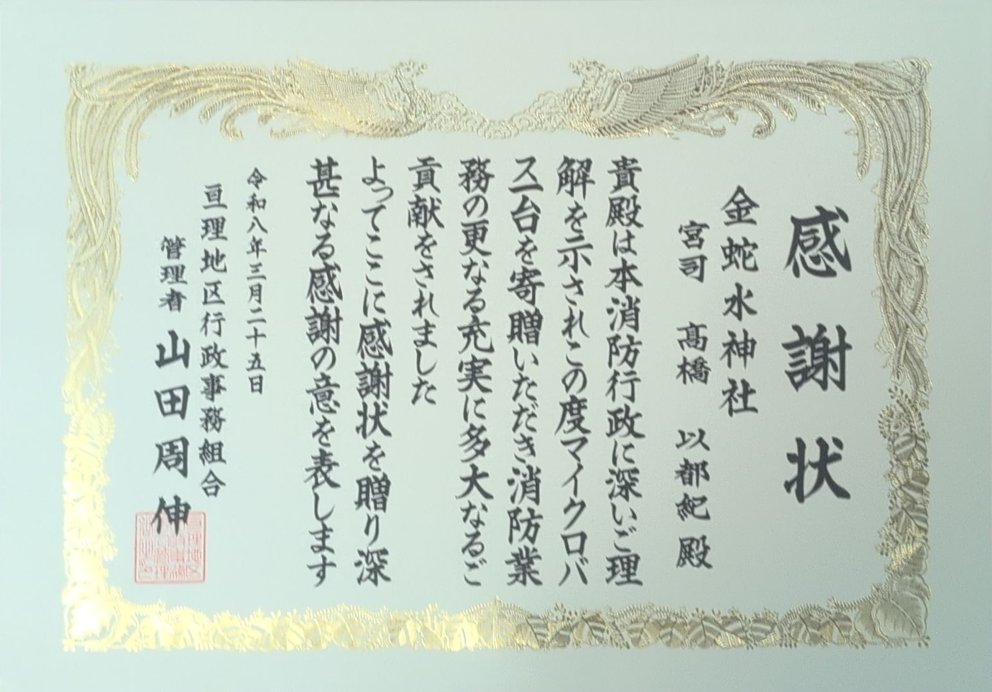 感謝状
金蛇水神社
宮司 髙橋 以都紀 殿
貴殿は本消防行政に深いご理
解を示されこの度マイクロバ
ス一台を寄贈いただき消防業
務の更なる充実に多大なるご
貢献をされました
よってここに感謝状を贈り深
甚なる感謝の意を表します
令和八年三月二十五日
亘理地区行政事務組合
管理者 山田周伸